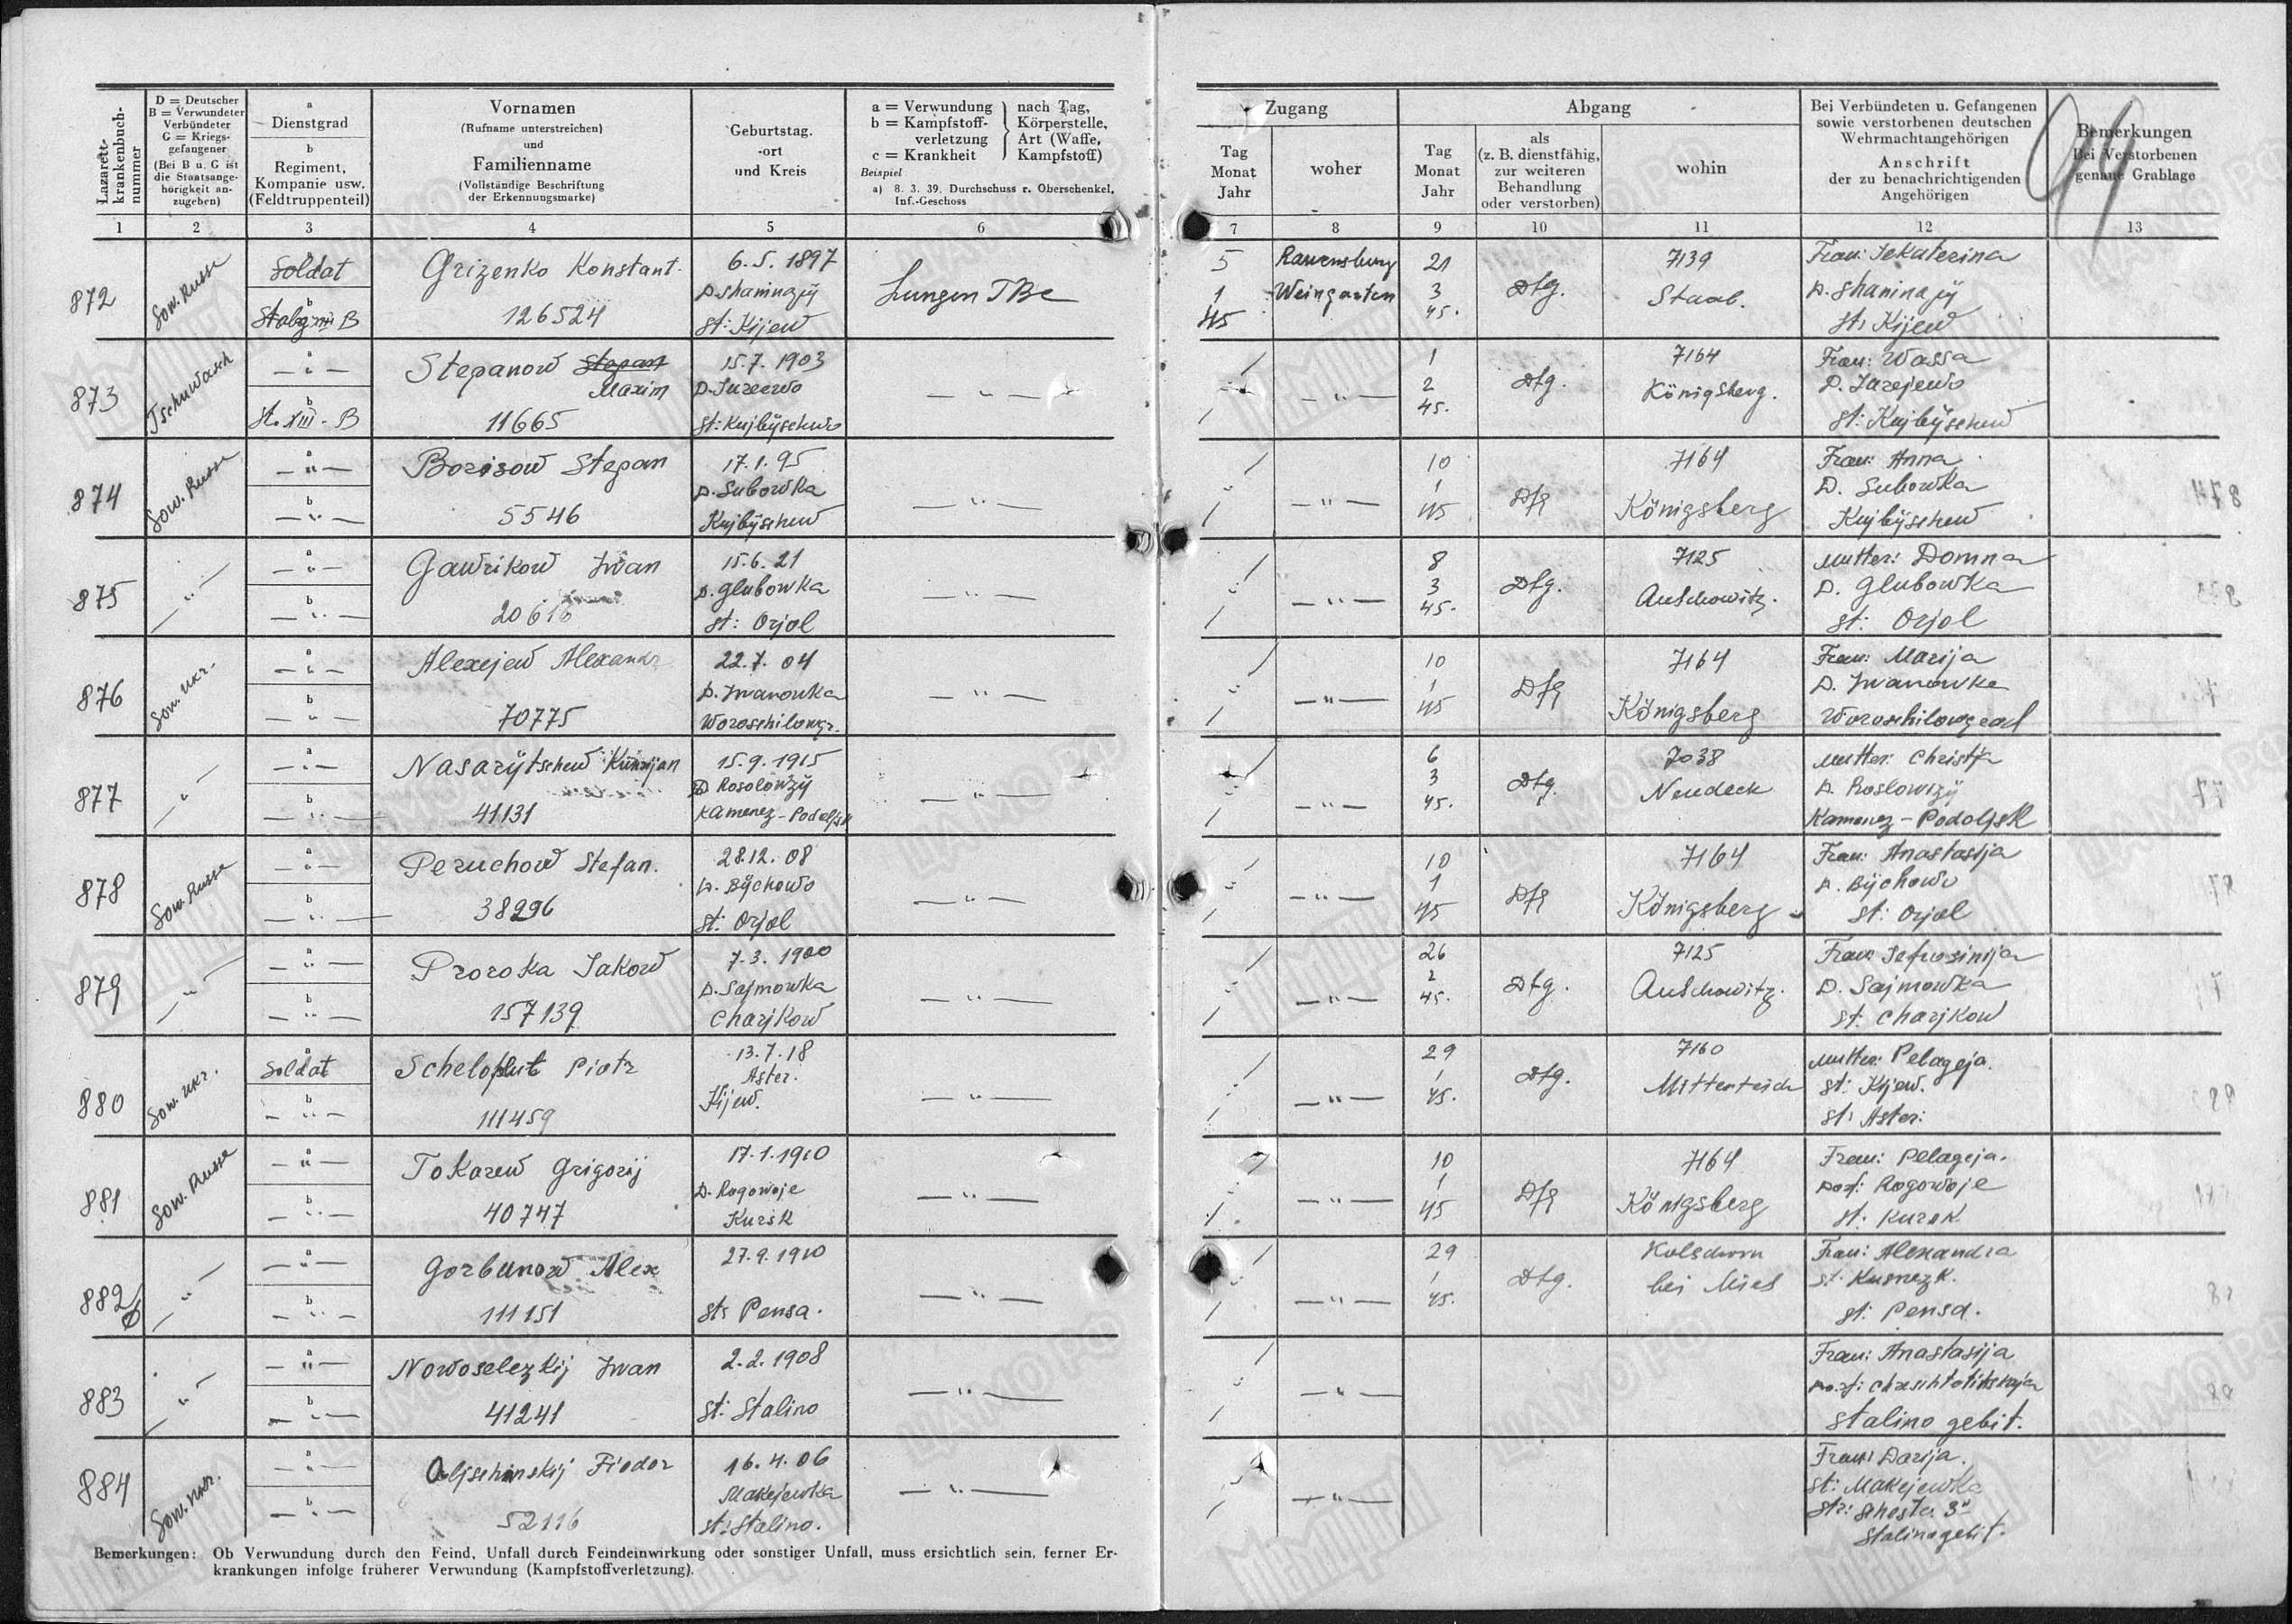 Lazarett-krankenbuch-nummer
D = Deutscher
B = Verwundeter
Verbündeter
G = Kriegs-
gefangener
(Bei B u. G ist
die Staatsange-
hörigkeit an-
zugeben)
a
Dienstgrad
b
Regiment,
Kompanie usw.
(Feldtruppenteil)
Vornamen
(Rufname unterstreichen)
und
Familienname
(Vollständige Beschriftung
der Erkennungsmarke)
Geburtstag.
-ort
und Kreis
a = Verwundung
b = Kampfstoff-
verletzung
c = Krankheit
nach Tag,
Körperstelle,
Art (Waffe,
Kampfstoff)
Beispiel
a) 8. 3. 39. Durchschuss r. Oberschenkel,
Inf.-Geschoss
Zugang
Tag
Monat
Jahr
woher
Abgang
Tag
Monat
Jahr
als
(z. B. dienstfähig,
zur weiteren
Behandlung
oder verstorben)
wohin
Bei Verbündeten u. Gefangenen
sowie verstorbenen deutschen
Wehrmachtangehörigen
Anschrift
der zu benachrichtigenden
Angehörigen
Bemerkungen
Bei Verstorbenen
genaue Grablage
1 2 3 4 5 6 7 8 9 10 11 12 13
872 Sow. Russe
Soldat
Grizenko Konstant.
126524
6.5.1897
D. Shaninajÿ
St: Kijew
Lungen TBc
5
1
45
Ravensburg
Weingarten
21
3
45.
Dfg.
7139
Staab.
Frau: Jekaterina
D. Shaninajÿ
St: Kijew
873 Tschuwasch
St. XIII - B
Stepanow Stepan
Maxim
11665
15.7.1903
St: Kujbÿschew
1
2
45.
Dfg.
7164
Königsberg.
Frau: Wassa
D. Jarejewo
St: Kujbÿschew
874 Sow. Russe
Borisow Stepan
5546
17.1.95
D. Subowka
Kujbÿschew
10
1
45
Dfg
7164
Königsberg
Frau: Anna
D. Subowka
Kujbÿschew
875
Gawrikow Iwan
20616
15.6.21
D. Glubowka
St: Orjol
8
3
45.
Dfg.
7125
Auschowitz.
Mutter: Domna
D. Glubowka
St: Orjol
876 Sow. Ukr.
Alexejew Alexandr
70775
22.7.04
D. Iwanowka
Woroschilowgr.
10
1
45
Dfg
7164
Königsberg
Frau: Marija
D. Iwanowka
Woroschilowgrad
877
Nasarÿtschew
41131
15.9.1915
D. Rosolowzÿ
Kamenez-Podoljsk
6
3
45.
Dfg.
7038
Neudeck
Mutter: Christja
D. Roslowizÿ
Kamenez-Podoljsk
878 Sow. Russe
Peruchow Stefan.
38296
28.12.08
D. Bÿchowo
St: Orjol
10
1
45
Dfg
7164
Königsberg
Frau: Anastasija
D. Bÿchowo
St: Orjol
879
Proroka Jakow
157139
7.3.1900
D. Sajmowka
Charjkow
26
2
45.
Dfg.
7125
Auschowitz.
Frau: Jefrosinija
D. Sajmowka
St. Charjkow
880 Sow. Ukr.
Soldat
Scheloput Piotr
111459
13.7.18
Aster.
Kijew.
29
1
45.
Dfg.
7160
Mitterteich
Mutter: Pelageja.
St: Kijew.
St: Aster:
881 Sow. Russe
Tokarew Grigorij
40747
17.1.1910
D. Rogowoje
Kursk
10
1
45
Dfg
7164
Königsberg
Frau: Pelageja.
Dorf: Rogowoje
St: Kursk
882
Gorbunow Alex
111151
27.9.1910
St: Pensa.
29
1
45.
Dfg.
Holschorn
bei Mies
Frau: Alexandra
St. Kusnezk.
St: Pensa.
883
Nowoselezkij Iwan
41241
2.2.1908
St: Stalino
Frau: Anastasija
Stalino gebit.
884 Sow. Ukr.
Oljschinskij Fiodor
52116
16.4.06
Makejewka
St: Stalino.
Frau: Darija.
St: Makejewka
Stalinogebit.
Bemerkungen: Ob Verwundung durch den Feind, Unfall durch Feindeinwirkung oder sonstiger Unfall, muss ersichtlich sein, ferner Er-
krankungen infolge früherer Verwundung (Kampfstoffverletzung).